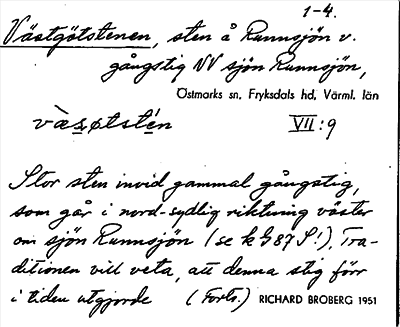 1-4.
Västgötstenen, sten å Runnsjön v.
gångstig NV sjön Runnsjön,
Östmarks sn, Fryksdals hd, Värml. län
VII:9
Stor sten invid gammal gångstig,
som går i nord-sydlig riktning väster
om sjön Runnsjön (se k G87 S!), Tra-
ditionen vill veta, att denna stig förr
i tiden utgjorde (Forts.) RICHARD BROBERG 1951